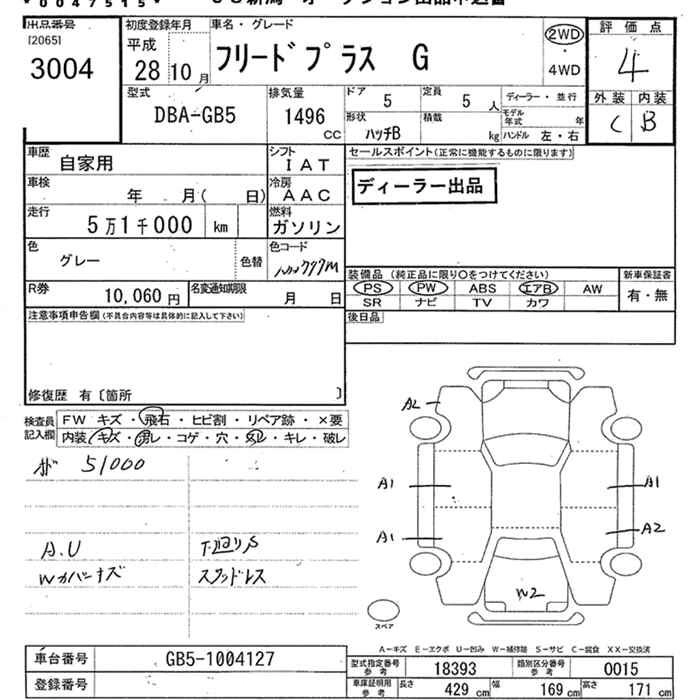 *0047515*
出品番号
[2065]
3004
初度登録年月
平成
28 10月
車名・グレード
フリードプラス G
2WD
・
4WD
評価点
4
外装 内装
C B
型式
DBA-GB5
排気量
1496
CC
ドア
5
定員
5人
形状
ハッチB
積載
kg
ディーラー・並行
モデル年式 年
ハンドル 左・右
車歴
自家用
シフト
IAT
車検
年 月( 日)
冷房
AAC
走行
5万1千000 km
燃料
ガソリン
色
グレー
色替
色コード
R券
10,060円
名変通知期限
月 日
セールスポイント(正常に機能するものに限ります)
ディーラー出品
装備品(純正品に限り○をつけてください)
PS PW ABS エアB AW
SR ナビ TV カワ
新車保証書
有・無
後日品
注意事項申告欄(不具合内容等は具体的に記入して下さい)
修復歴 有〔箇所 〕
検査員
記入欄
FW キズ・飛石・ヒビ割・リペア跡・×要
内装 キズ・汚レ・コゲ・穴・スレ・キレ・破レ
51000
A.U
下回りS
Wカバーキズ
スタッドレス
A2
A1
A1
A1
A2
W2
スペア
A-キズ E-エクボ U-凹み W-補修跡 S-サビ C-腐食 XX-交換済
車台番号
GB5-1004127
登録番号
型式指定番号
参考
18393
類別区分番号
参考
0015
車庫証明用
参考
長さ
429 cm
幅
169 cm
高さ
171 cm